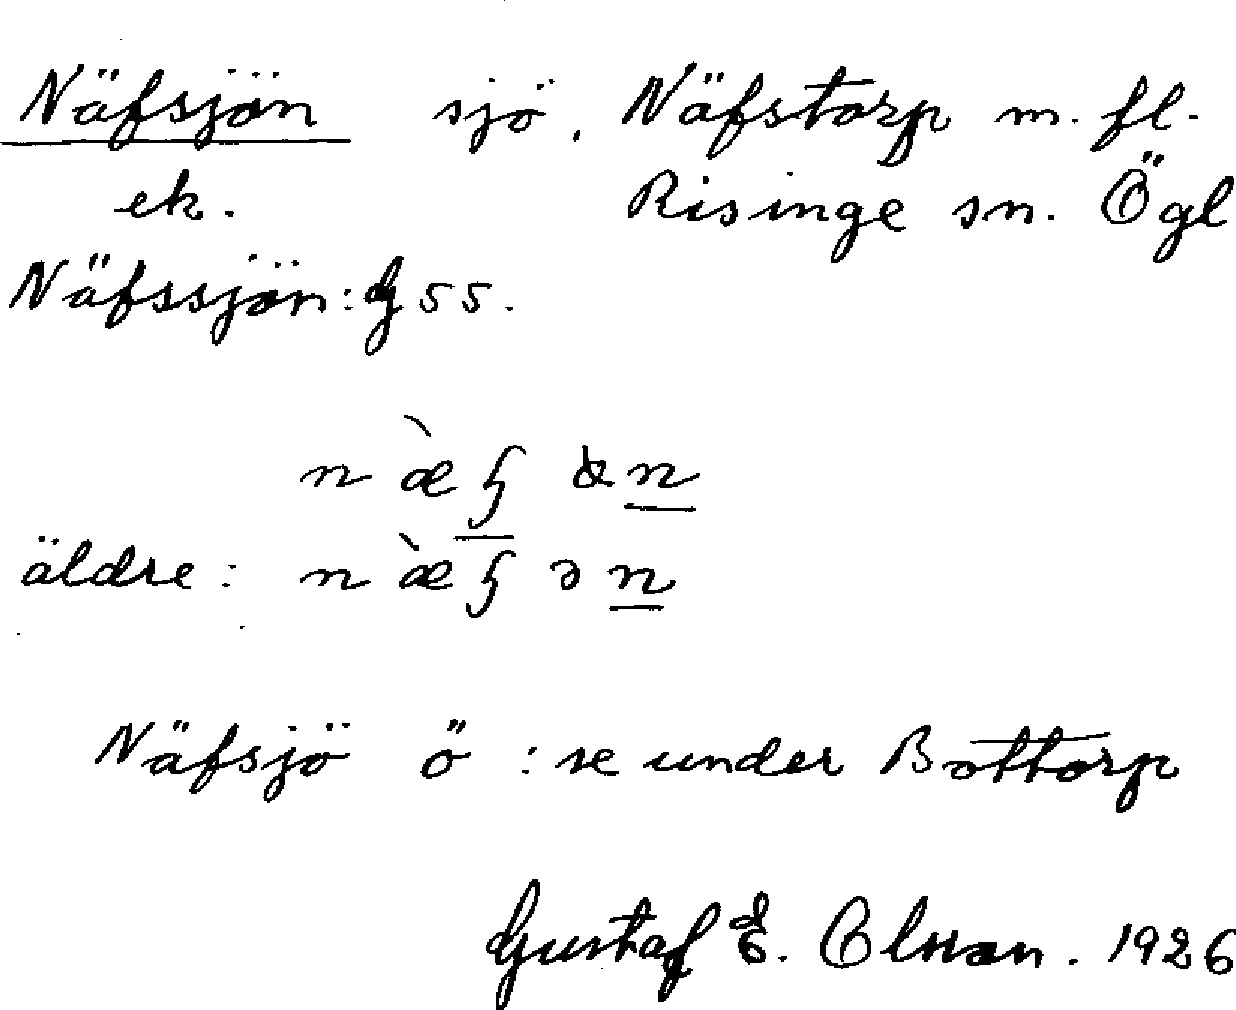 Näfsjön sjö, Näfstorp m. fl.
ek. Risinge sn. Ögl
Näfssjön: G 55.
äldre:
Näfsjö ö : se under Bottorp
Gustaf E. Olsson. 1926